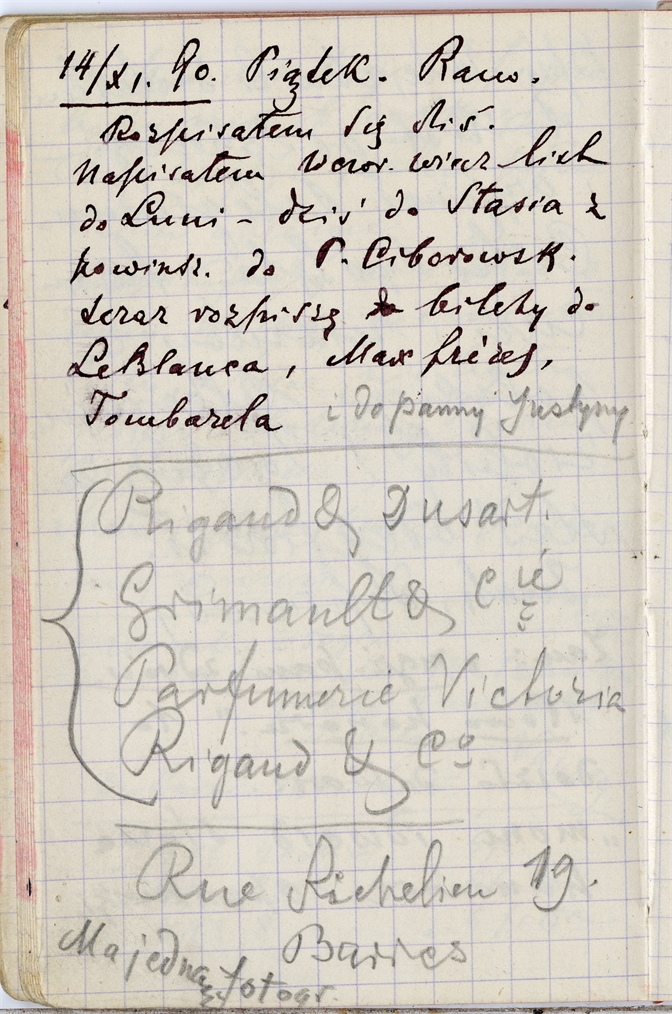 14/XI. 90. Piątek. Rano.
Rozpisałem się dziś.
Napisałem wczor. wiecz list
do Luni – dziś do Stasia z
powinsz. do P. Ciborowsk.
teraz rozpiszę bilety do
LeBlanca, Max frères,
Tombarela i do panny Justyny
Rigaud & Dusart.
Grimault & Cie
Parfumerie Victoria
Rigaud & Co
Rue Richelieu 19.
Ma jedną fotogr.